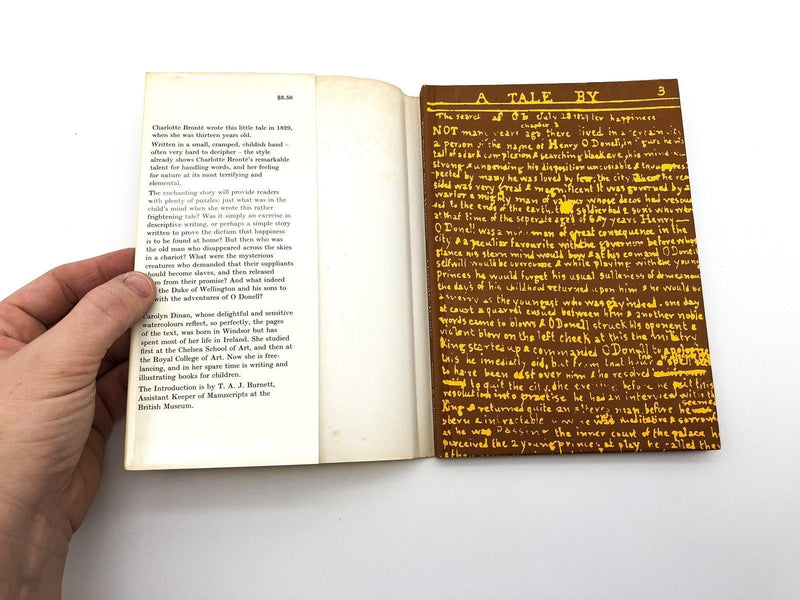 $3.50
Charlotte Brontë wrote this little tale in 1829,
when she was thirteen years old.
Written in a small, cramped, childish hand –
often very hard to decipher – the style
already shows Charlotte Brontë's remarkable
talent for handling words, and her feeling
for nature at its most terrifying and
elemental.
The enchanting story will provide readers
with plenty of puzzles: just what was in the
child's mind when she wrote this rather
frightening tale? Was it simply an exercise in
descriptive writing, or perhaps a simple story
written to prove the dictum that happiness
is to be found at home? But then who was
the old man who disappeared across the skies
in a chariot? What were the mysterious
creatures who demanded that their suppliants
should become slaves, and then released
from their promise? And what indeed
the Duke of Wellington and his sons to
with the adventures of O Donell?
Carolyn Dinan, whose delightful and sensitive
watercolours reflect, so perfectly, the pages
of the text, was born in Windsor but has
spent most of her life in Ireland. She studied
first at the Chelsea School of Art, and then at
the Royal College of Art. Now she is free-
lancing, and in her spare time is writing and
illustrating books for children.
The Introduction is by T. A. J. Burnett,
Assistant Keeper of Manuscripts at the
British Museum.
A TALE BY 3
The search July happiness
chapter
NOT many years ago there lived in a certain city
a person of the name of Henry O Donell in figure he was
tall of dark complexion & searching black eye, his mind was
strong & unbending his disposition unsociable &
by many he was loved by few. the city where he
sided was very great & magnificent it was governed by a
warior a mighty man of whose had
ed to the ends of the earth. soldier had 2 sons who were
at that time of the seperate ages of 6 & 7 years Henry—
O Donell was a man of great consequence in the
city & a peculiar favourite with the governor before whose
glance his stern mind would bow & at his comand O Donell's
selfwill would be overcome & while playing with the young
princes he would forget his usual sullness of demeanour
the days of his childhood returned upon him & he would be
merry as the youngest who was gay indeed. one day
at court a quarrel ensued between him & another noble
words came to blows & O Donell struck his oponent a
violent blow on the left cheek at this the military
King started up & commanded O Donell to
this he imediatly did, but from that hour a spell
to have been cast over him & he resolved
to quit the city, the
resolution into practise he had an interveiw with the
King & returned quite an altered man before he seemed
& intractable now he was meditative & sorrowful
as he was passing the inner court of the palace he
perceived the 2 young princes at play he called them